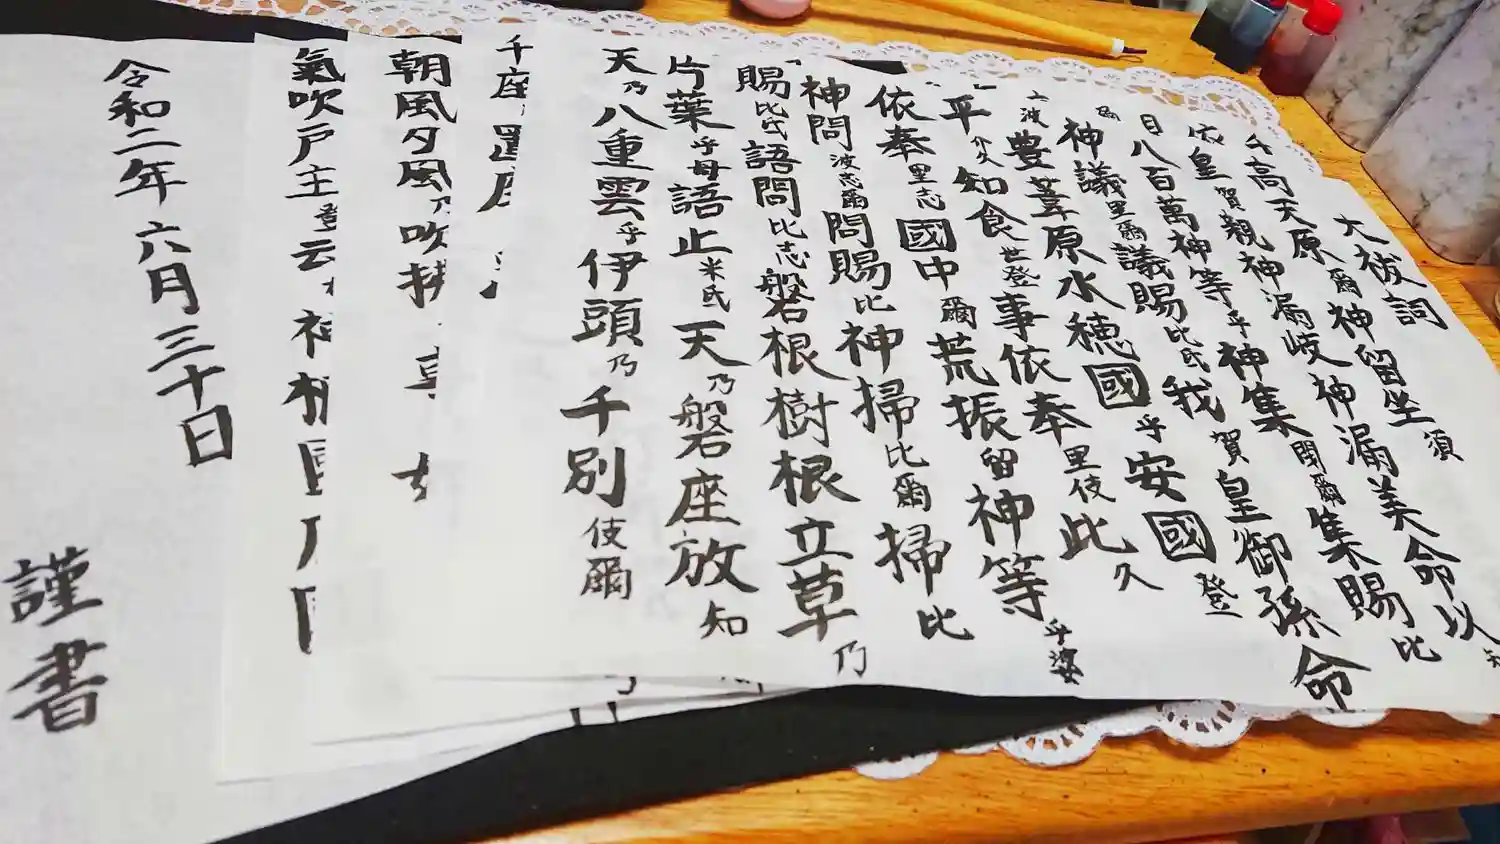 大祓詞
高天原爾神留坐須
皇賀親神漏岐神漏美命以知
依
八百萬神等乎神集閇爾集賜比
神議里爾議賜比氐我賀皇御孫命
波豊葦原水穂國乎安國登
平介久知食世登事依奉里伎此久
依奉里志國中爾荒振留神等乎婆
神問波志爾問賜比神掃比爾掃比
賜比氐語問比志磐根樹根立草乃
片葉乎母語止米氐天乃磐座放知
天乃八重雲乎伊頭乃千別伎爾
千座置
朝風夕風乃吹
氣吹戸主登云
令和二年六月三十日
謹書